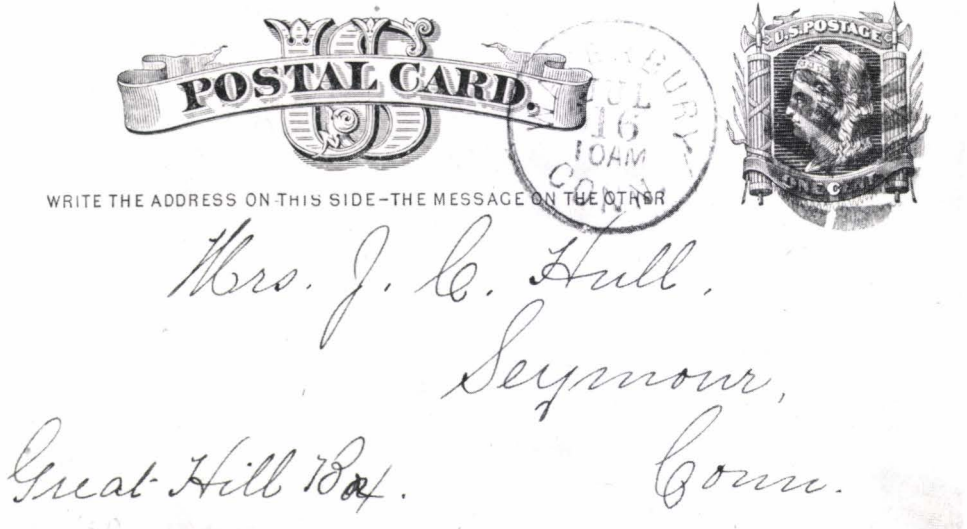 US
POSTAL CARD.
U.S. POSTAGE
ONE CENT
JUL
16
10AM
CONN.
WRITE THE ADDRESS ON THIS SIDE–THE MESSAGE ON THE OTHER
Mrs. J. C. Hull.
Seymour,
Conn.
Great Hill Box.